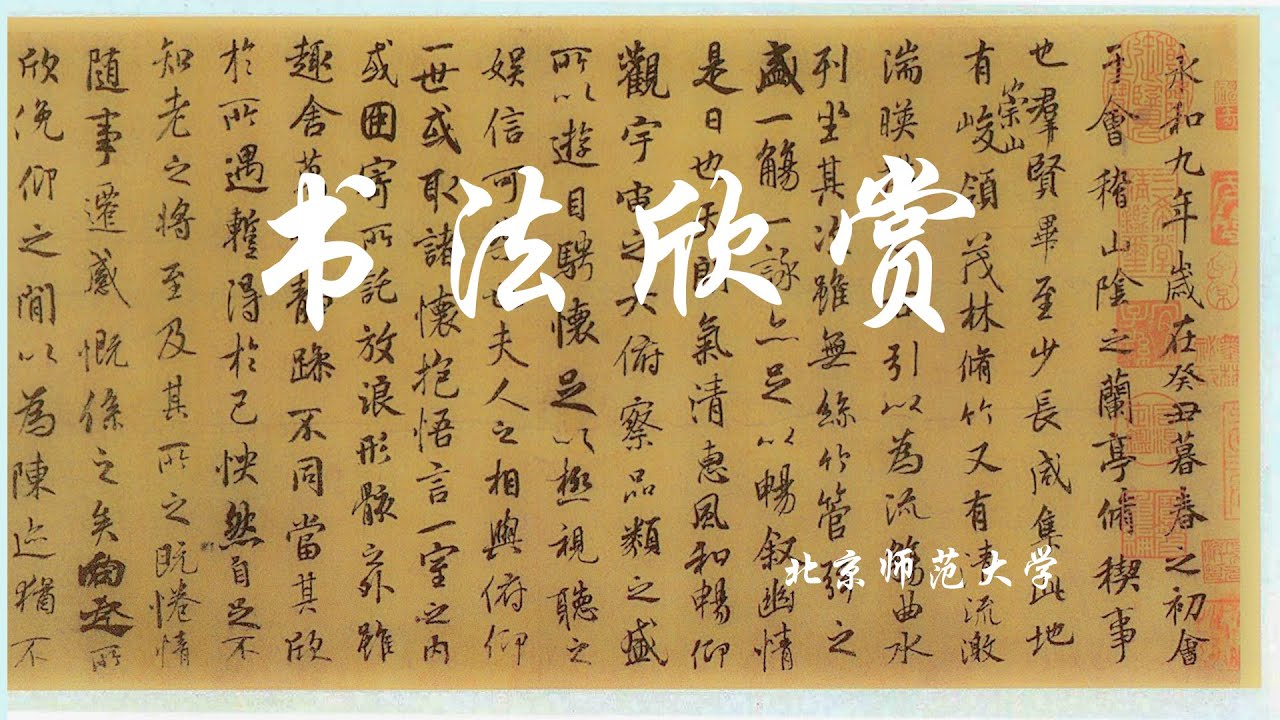 书法欣赏
北京师范大学
永和九年歲在癸丑暮春之初會
于會稽山陰之蘭亭脩稧事
也羣賢畢至少長咸集此地
有崇山峻領茂林脩竹又有清流激
湍暎引以為流觴曲水
列坐其次雖無絲竹管弦之
盛一觴一詠亦足以暢叙幽情
是日也天朗氣清惠風和暢仰
觀宇宙之大俯察品類之盛
所以遊目騁懷足以極視聽之
娛信可樂也夫人之相與俯仰
一世或取諸懷抱悟言一室之內
或因寄所託放浪形骸之外雖
趣舍萬靜躁不同當其欣
於所遇蹔得於己怏然自足不
知老之將至及其所之既惓情
隨事遷感慨係之矣向之所
欣俛仰之閒以為陳迹猶不